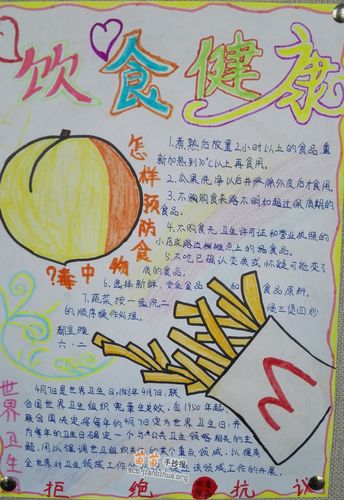 饮食健康
怎样预防食物中毒?
1.煮熟后放置2小时以上的食品,重
新加热到70℃以上再食用。
2.瓜果洗净以后并去除外皮后才食用。
3.不购购食来路不明和超过保质期的
食品。
4.不购食无卫生许可证和营业执照的
小店或路边摊点上的食品。
5.不吃已确认变质或怀疑可能变了
质的食品。
6.选择新鲜、安全食品和食品原料。
7.蔬菜按一洗二
的顺序操作处理。
六·二
世界卫生
4月7日是世界卫生日,
合国世界卫生组织
联合国决定将每年的4月7日定为世界卫生日,并
为每年的卫生日确定一个与公共卫生领域相关的主
题,用以强调世卫组织关
全世界对卫生领域工作的
该领域工作的开展。
苗苗手抄报
拒绝
抗议